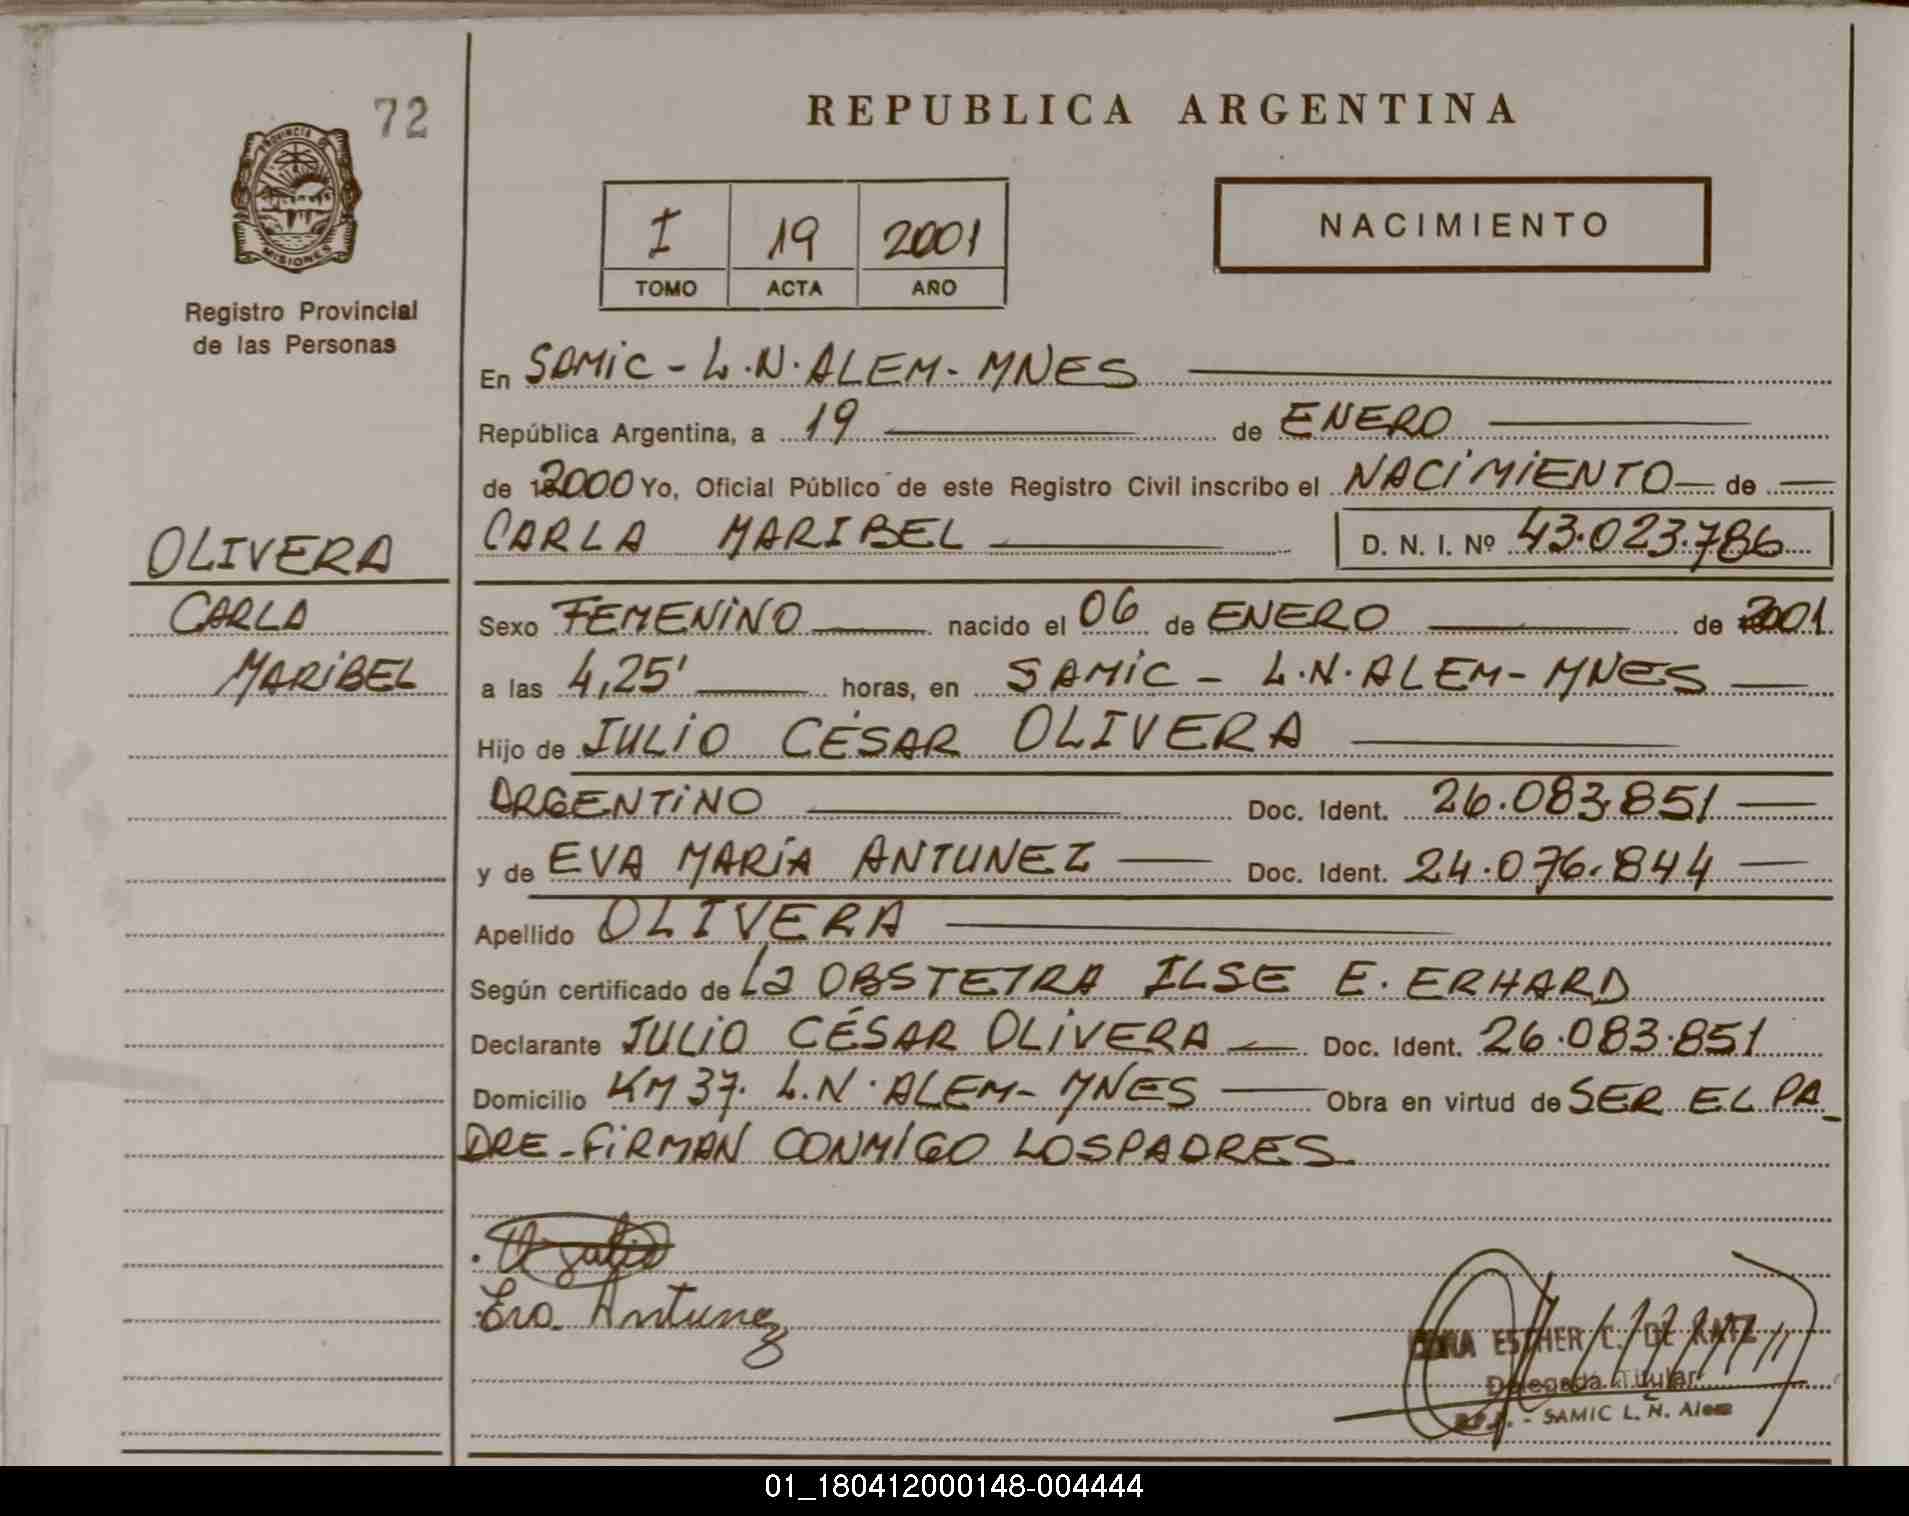 72
REPUBLICA ARGENTINA
PROVINCIA
MISIONES
Registro Provincial
de las Personas
I 19 2001
TOMO ACTA AÑO
NACIMIENTO
En SAMIC - L.N. ALEM - MNES
República Argentina, a 19 de ENERO
de 2000 Yo, Oficial Público de este Registro Civil inscribo el NACIMIENTO de
CARLA MARIBEL D. N. I. Nº 43.023.786
OLIVERA
CARLA
MARIBEL
Sexo FEMENINO nacido el 06 de ENERO de 2001
a las 4,25' horas, en SAMIC - L.N. ALEM - MNES
Hijo de JULIO CÉSAR OLIVERA
ARGENTINO Doc. Ident. 26.083.851
y de EVA MARÍA ANTUNEZ Doc. Ident. 24.076.844
Apellido OLIVERA
Según certificado de La OBSTETRA ILSE E. ERHARD
Declarante JULIO CÉSAR OLIVERA Doc. Ident. 26.083.851
Domicilio KM 37. L.N. ALEM - MNES Obra en virtud de SER EL PA_
DRE - FIRMAN CONMIGO LOS PADRES
Eva Antunez
ESTHER C. DE KATZ
Delegada Titular
SAMIC L. N. Alem
01_180412000148-004444